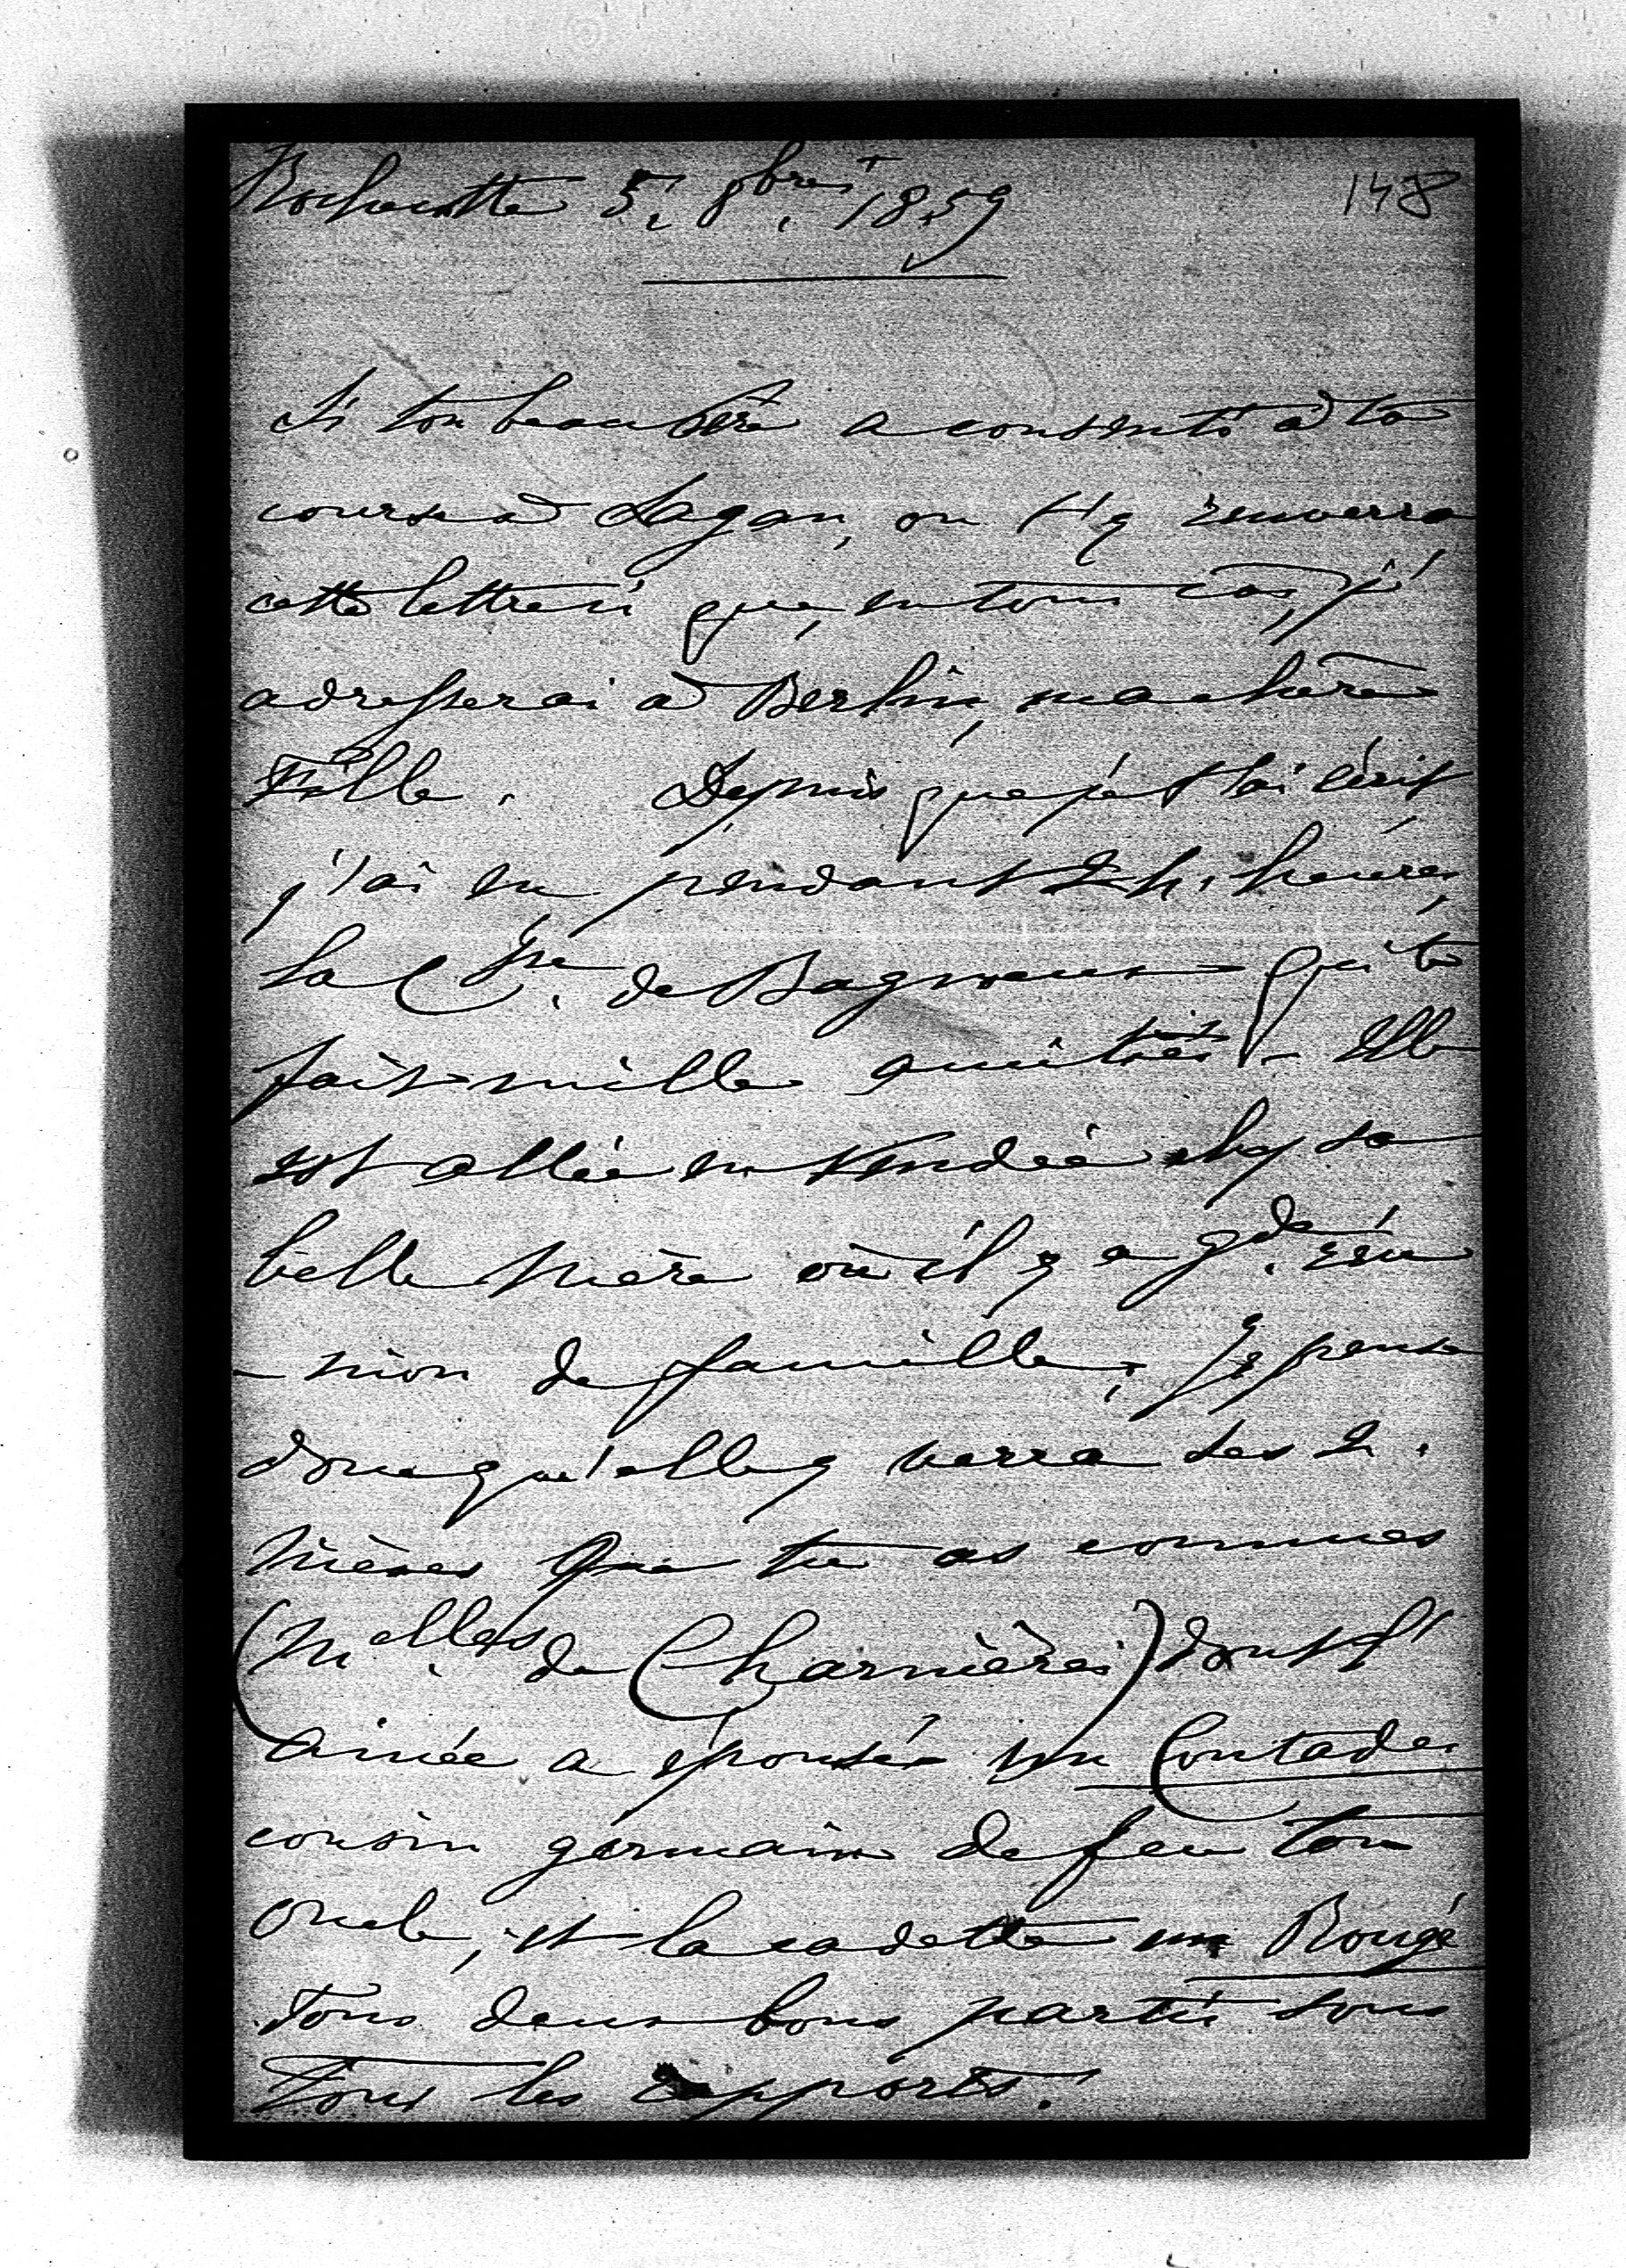 Rochecotte 5. 8bre. 1859
148
Si ton beau père a consenti à ta
course à Sagan, on t'y renverra
cette lettre-ci que, en tous cas, j'
adresserai à Berlin, ma chère
Fille. Depuis que je t'ai écrit
j'ai eu pendant 24. heures,
la Ctsse. de Bagneux qui te
fait mille amitiés. - Elle
est allée en Vendée chez sa
belle Mère où il y a gde. réu
- nion de famille; je pense
donc qu'elle y verra ses 2.
Nièces que tu as connues
(Melles. de Charnières) dont l'
ainée a épousé un Contades
cousin germain de feu ton
oncle, et la cadette un Rougé
tous deux bons partis sous
tous les rapports.